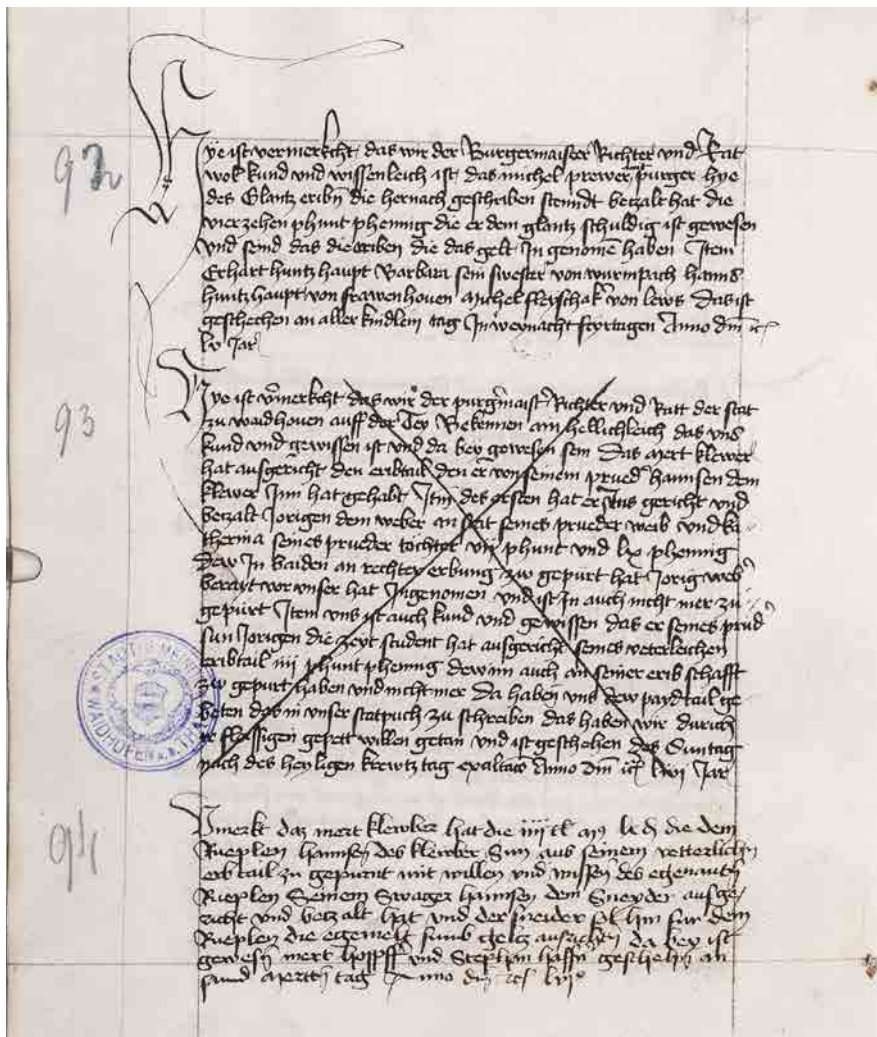 92
Hye ist vermerkcht das wir der Burgermaister Richter und Rat
wol kund und wissenleich ist das michel prewer purger hye
des Glantz eribn die hernach geschriben stenndt betzalt hat die
vierzehen phunt phennig die er dem glantz schuldig ist gewesen
und send das die eriben die das gelt In genomē haben Item
Erhart huntzhaupt Barbara sein swester von wurmpach hanns
huntzhaupt von frawenhoven michel fleyschakˀ von lews Das ist
geschechen an aller kindlein tag In weynacht feyrtagen Anno dm̄
lv Jar
93
Hye ist v̄merkcht das wir der purgˀmaistˀ Richter und Ratt der stat
zu waidhoven auff der Tey Bekennen ainhellichleich das uns
kund und gewissen ist und da bey gewesen sein Das mert klewer
hat ausgericht den eribtail den er von seinem pruedˀ hannsen dem
klewer Inn hat gehabt Itm̄ des ersten hat er uns gericht und
betzalt Jorigen dem weber an stat seines prueder weib und ka
therina seines prueder tochter vii phunt und lx phennig
dew In baiden an rechter erbung zw gepürt hat Jorig webˀ
berayt vor unser hat Ingenomen und ist In auch nicht mer zu
gepürt Item uns ist auch kund und gewissen das er seines prudˀ
sun Jorigen die zeyt student hat ausgericht seines veterleichen
eribtail iiii phunt phennig dew im auch an seiner erib schafft
zw gepurt haben und nicht mer Da haben uns dew payd tail ge
beten das in unser statpuch zu schreiben das haben wir durich
ir fleissigen gepett willen getan und ist geschehen des Suntag
nach des heyligen krewtz tag exaltacō Anno dm̄ lvi Jar
STADTGEMEINDE WAIDHOFEN A.D. THAYA
94
Vmerkt daz mert klewber hat die iiii tl die dem
Rueplen hannsen des klewber Sun aus seinem vetterlichn
erbtail zu gepurnt mit willen und wissen des egenantn
Rueplen Seinem Swager hannsen dem Sneyder ausge
richt und betzalt hat und der sneider sol hin fur dem
Rueplen die egemelt sumb geltz ausrichtn da bey ist
gewesn mert hopff und Stephan haffn geschehn an
sand mertn tag Anno dm̄ lvi